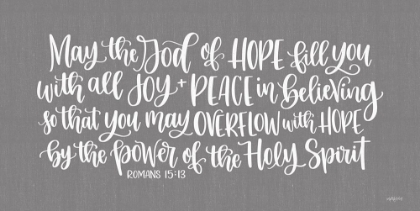 May the God of HOPE fill you
with all JOY + PEACE in believing
so that you may OVERFLOW with HOPE
by the power of the Holy Spirit
ROMANS 15:13